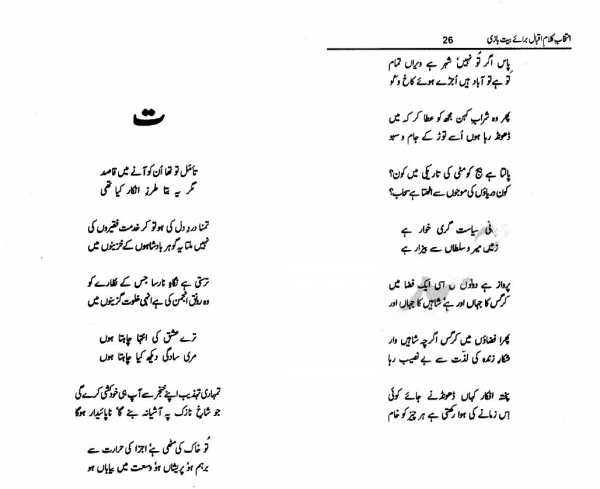 انتخابِ کلامِ اقبال برائے بیت بازی 26
پاس اگر تُو نہیں شہر ہے ویراں تمام
تُو ہے تو آباد ہیں اُجڑے ہوئے کاخ و کُو
پھر وہ شرابِ کہن مجھ کو عطا کر کہ میں
ڈھونڈ رہا ہوں اُسے توڑ کے جام و سبو
پالتا ہے بیج کو مٹی کی تاریکی میں کون؟
کون دریاؤں کی موجوں سے اٹھاتا ہے سحاب؟
نئی سیاست گری خوار ہے
زمیں میر و سلطاں سے بیزار ہے
پرواز ہے دونوں کی اسی ایک فضا میں
کرگس کا جہاں اور ہے شاہیں کا جہاں اور
پھرا فضاؤں میں کرگس اگرچہ شاہیں وار
شکارِ زندہ کی لذّت سے بے نصیب رہا
پختہ افکار کہاں ڈھونڈنے جائے کوئی
اِس زمانے کی ہوا رکھتی ہے ہر چیز کو خام
ت
تأمّل تو تھا اُن کو آنے میں قاصد
مگر یہ بتا طرزِ انکار کیا تھی
تمنا دردِ دل کی ہو تو کر خدمت فقیروں کی
نہیں ملتا یہ گوہر بادشاہوں کے خزینوں میں
ترستی ہے نگاہِ نارسا جس کے نظارے کو
وہ رونق انجمن کی ہے انھی خلوت گزینوں میں
ترے عشق کی انتہا چاہتا ہوں
مری سادگی دیکھ کیا چاہتا ہوں
تمہاری تہذیب اپنے خنجر سے آپ ہی خودکشی کرے گی
جو شاخِ نازک پہ آشیانہ بنے گا ناپائیدار ہوگا
تُو خاک کی مٹھی ہے اجزا کی حرارت سے
برہم ہو پریشاں ہو وسعت میں بیاباں ہو